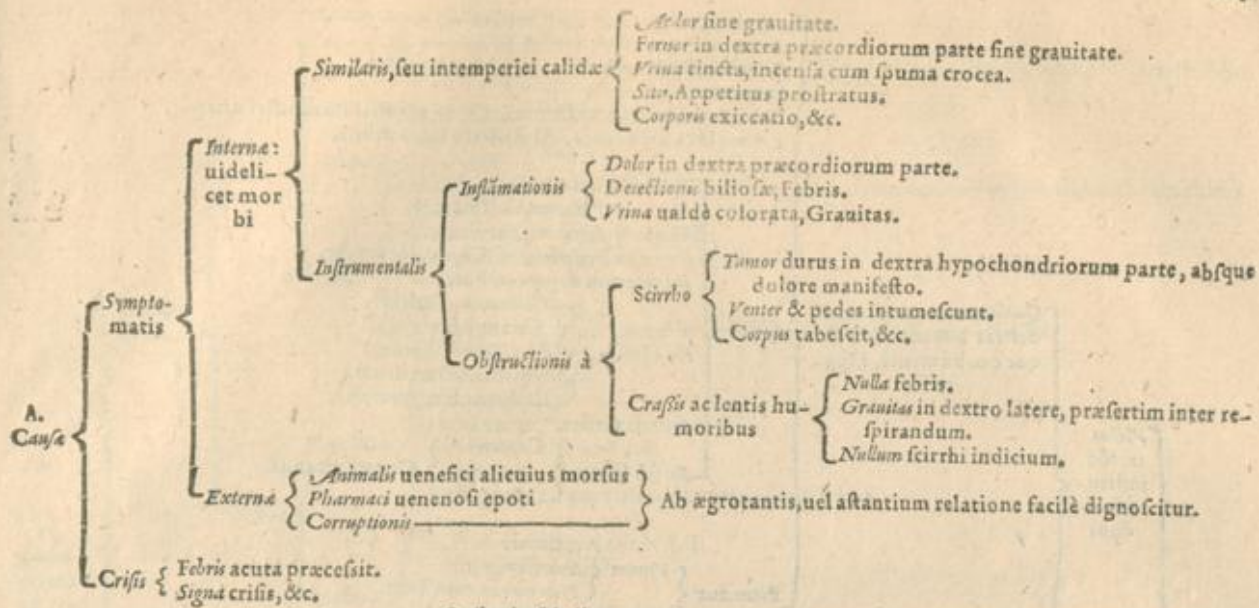 A.
Causæ
Sympto-
matis
Internæ:
uideli-
cet mor
bi
Similaris, seu intemperiei calidæ
Ardor sine grauitate.
Feruor in dextra præcordiorum parte sine grauitate.
Vrina tincta, incensa cum spuma crocea.
Sitis, Appetitus prostratus.
Corporis exiccatio, &c.
Instrumentalis
Inflāmationis
Dolor in dextra præcordiorum parte.
Deiectiones biliosæ, Febris.
Vrina ualdè colorata, Grauitas.
Obstructionis à
Scirrho
Tumor durus in dextra hypochondriorum parte, absque
dolore manifesto.
Venter & pedes intumescunt.
Corpus tabescit, &c.
Crassis ac lentis hu-
moribus
Nulla febris.
Grauitas in dextro latere, præsertim inter re-
spirandum.
Nullum scirrhi indicium.
Externæ
Animalis uenefici alicuius morsus
Pharmaci uenenosi epoti
Corruptionis
Ab ægrotantis, uel astantium relatione facilè dignoscitur.
Crisis
Febris acuta præcessit.
Signa crisis, &c.